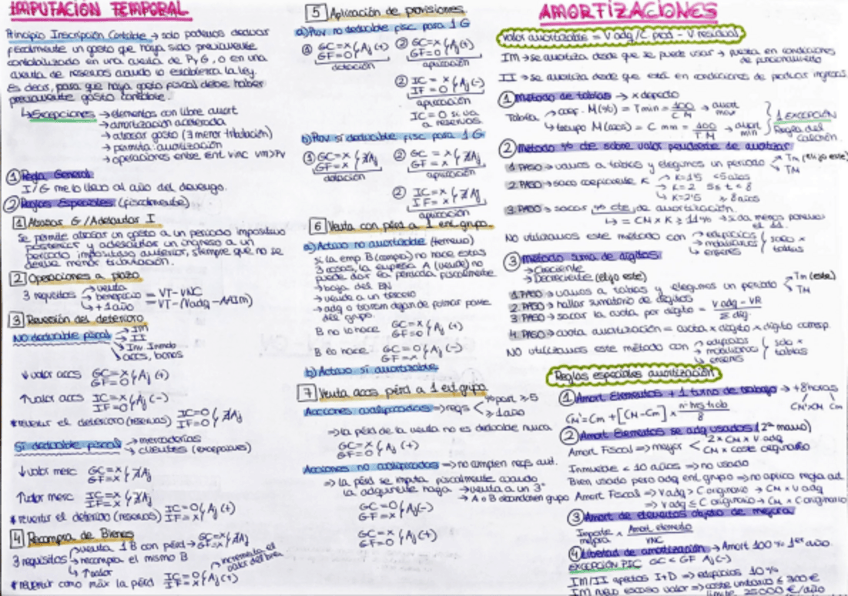 IMPUTACIÓN TEMPORAL
Principio Inscripción Contable → solo podemos deducir
fiscalmente un gasto que haya sido previamente
contabilizado en una cuenta de PyG, o en una
cuenta de reservas cuando lo establezca la ley
Es decir, para que haya gasto fiscal debe haber
previamente gasto contable.
↳ Excepciones → elementos con libre amort
→ amortización acelerada
→ atrasar gasto (∄ menor tributación)
→ permuta amortización
→ operaciones entre ent vinc
① Regla General
I/G me lo llevo al año del devengo.
② Reglas Especiales (fiscalmente)
1 Atrasar G/Adelantar I
Se permite atrasar un gasto a un periodo impositivo
posterior y adelantar un ingreso a un
periodo impositivo anterior, siempre que no se
derive menor tributación.
2 Operaciones a plazo
3 requisitos → venta
→ beneficio = VT - VNC
→ +1 año = VT - (Vadq - AAIm)
3 Reversión del deterioro
NO deducible fiscal → IM
→ II
→ Inv. Inmob
→ accs, bonos
↓valor accs GC=X GF=0 } Aj (+)
↑valor accs IC=X IF=0 } Aj (-)
* revertir el deterioro (reservas) IC=0 IF=0 } ∄Aj
Sí deducible fiscal → mercaderías
→ clientes (excepciones)
↓valor merc GC=X GF=X } ∄Aj
↑valor merc IC=X IF=X } ∄Aj
* revertir el deterioro (reservas) IC=0 IF=X } Aj (+)
4 Recompra de Bienes
3 requisitos → venta 1 B con pérd → GC=X GF=X } ∄Aj
→ recompra el mismo B
→ ↑valor
incremento el valor del bien
* revertir como máx la pérd IC=0 IF=X } Aj (+)
5 Aplicación de provisiones
a) Prov no deducible fisc. para 1 G
① GC=X GF=0 } Aj (+)
dotación
② GC=X GF=0 } Aj (+)
aplicación
② IC=X IF=0 } Aj (-)
aplicación
IC=0 si va
a reservas
b) Prov sí deducible fisc para 1 G
① GC=X GF=X } ∄Aj
dotación
② GC=X GF=X } ∄Aj
aplicación
② IC=X IF=X } ∄Aj
aplicación
6 Venta con pérd a 1 ent. grupo
a) Activo no amortizable (terreno)
X la emp B (compra) no hace estas
3 cosas, la empresa A (vende) no
puede dar la pérdida fiscalmente
→ baja del BN
→ vende a un tercero
→ adq o transm dejan de formar parte
del grupo
B no lo hace GC=X GF=0 } Aj (+)
B lo hace GC=0 GF=X } Aj (-)
b) Activo sí amortizable
7 Venta accs pérd a 1 ent. grupo
Acciones cualificadas → reqs < % part ≥ 5
≥ 1 año
→ la pérd de la venta no es deducible nunca
GC=X GF=0 } Aj (+)
Acciones no cualificadas → no cumplen reqs ant.
→ la pérd se imputa fiscalmente cuando
la adquirente haga → venta a un 3º
→ A o B abandonen grupo
GC=0 GF=X } Aj (-)
GC=X GF=0 } Aj (+)
AMORTIZACIONES
Valor amortizable = V adq/C prod - V residual
IM → se amortiza desde que se puede usar → puesta en condiciones
de funcionamiento
II → se amortiza desde que está en condiciones de producir ingresos
① Método de tablas → X defecto
Tabla → coef. M (%) = T min = 100/CM → amort max
→ tiempo M (años) = C mín = 100/TM → amort min
1 EXCEPCIÓN
Regla del
② Método % cte sobre valor pendiente de amortizar
1 PASO → vamos a tablas y elegimos un periodo → Tm (elijo este)
→ TM
2 PASO → saco coeficiente K → K=1'5 <5 años
→ K=2 5≤ t <8
→ K=2'5 ≥ 8 años
3 PASO → sacar % cte de amortización
↳ = CM x K ≥ 11% →
el 11.
No utilizamos este método con → edificios
→ mobiliarios
→ enseres
} solo x
tablas
③ Método suma de dígitos
→ Creciente
→ Decreciente (elijo este)
1 PASO → vamos a tablas y elegimos un periodo → Tm (este)
→ TM
2 PASO → hallar sumatorio de dígitos
3 PASO → sacar la cuota por dígito = V adq - VR / Σ dig.
4 PASO → cuota amortización = cuota x dígito x dígito corresp
NO utilizamos este método con → edificios
→ mobiliarios
→ enseres
} solo x
tablas
Reglas especiales amortización
① Amort. Elementos + 1 turno de trabajo → +8 horas
CM'=Cm + [(CM-Cm) x nº hrs trab / 8]
② Amort Elementos se adq usados (2ª mano)
Amort Fiscal → mayor < 2 x CM x V adq
CM x coste originario
Inmueble < 10 años → no usado
Bien usado pero adq ent. grupo → no aplico regla ant.
Amort Fiscal → Vadq > C originario → CM x V adq
→ Vadq ≤ C originario → CM x C originario
③ Amort de elementos objeto de mejora
Importe mejora x Amort. elemento / VNC
④ Libertad de amortización → Amort 100% 1er año
EXCEPCIÓN PIC GC < GF Aj (-)
IM/II afectos I+D → edificios 10%
IM nuevo escaso valor → coste unitario ≤ 300 €
límite 25000 €/año